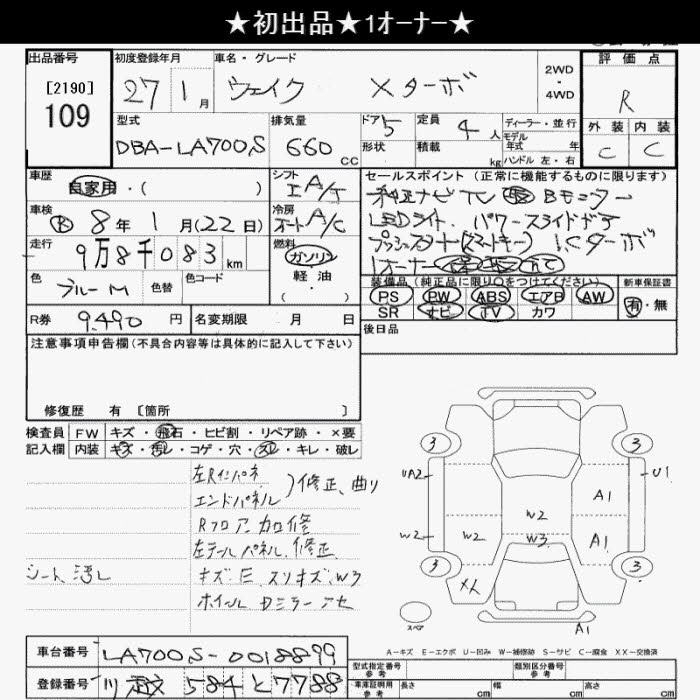 ★初出品★1オーナー★
出品番号
[2190]
109
初度登録年月
27 1月
車名・グレード
ウェイク Xターボ
2WD
・
4WD
評価点
R
外装 内装
C C
型式
DBA-LA700S
排気量
660 CC
ドア 5
形状
定員 4人
積載 kg
ディーラー・並行
モデル
年式 年
ハンドル 左・右
車歴
自家用・( )
シフト
I A/T
セールスポイント (正常に機能するものに限ります)
純正ナビ TV Bモニター
LEDライト パワースライドドア
プッシュスタート(スマートキー) I.Cターボ
1オーナー
車検
R 8年 1月(22日)
冷房
オート A/C
走行
9万8千083km
燃料
ガソリン
軽油
・( )
色
ブルーM
色替
色コード
装備品 (純正品に限り○をつけてください)
PS PW ABS エアB AW
SR ナビ TV カワ
新車保証書
有・無
R券 9,490円
名変期限 月 日
後日品
注意事項申告欄(不具合内容等は具体的に記入して下さい)
修復歴 有 [箇所 ]
検査員 FW キズ・飛石・ヒビ割・リペア跡・×要
記入欄 内装 キズ・汚レ・コゲ・穴・スレ・キレ・破レ
左Rインパネ
エンドパネル )修正、曲り
Rフロア 加修
左テールパネル、修正
シート汚レ
キズ E、スリキズ、W3
ホイール Dミラー アセ
3 3
UA2 U1
A1
W2
W2 W2 W3 A1
3 3
XX
スペア
A1
A-キズ E-エクボ U-凹み W-補修跡 S-サビ C-腐食 XX-交換済
車台番号 LA700S-0018899
登録番号 584 と 7788
型式指定番号
参考
類別区分番号
参考
車庫証明用
参考
長さ cm 幅 cm 高さ cm